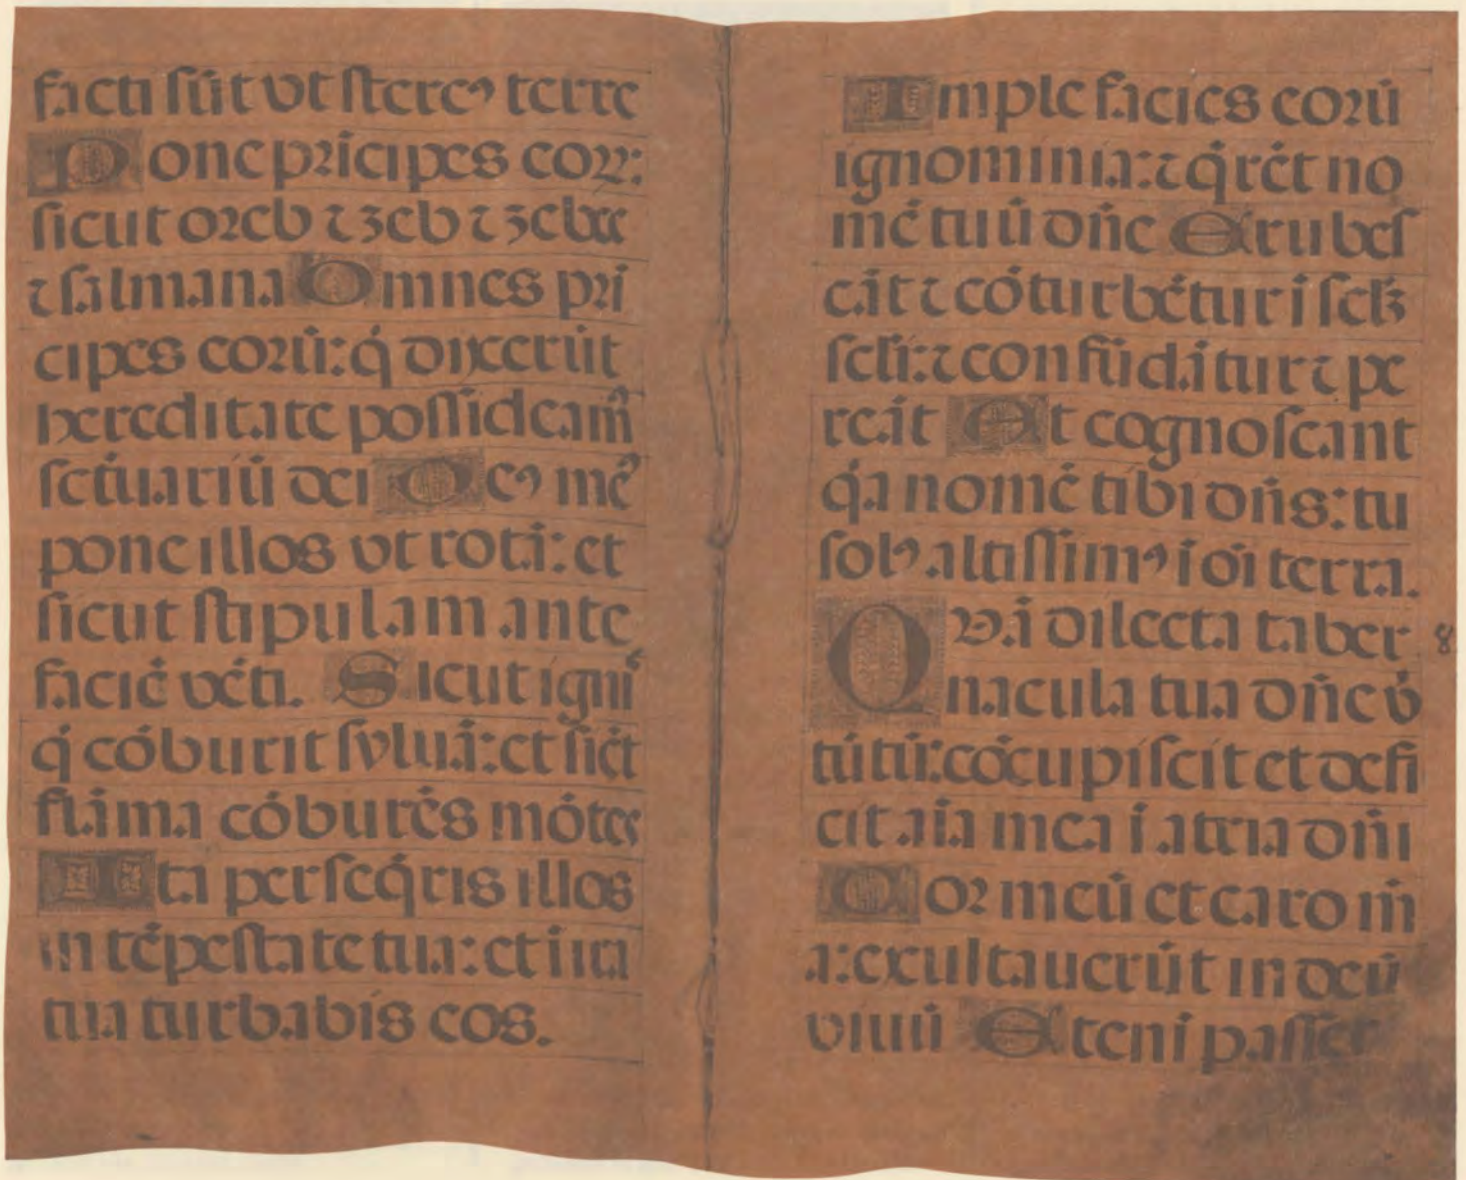 facti sūt vt stercꝰ terre
Pone prīcipes coꝝ:
sicut oreb ⁊ zeb ⁊ zebee
⁊ salmana Omnes prī
cipes corū: q́ dixerūt
hereditate possideam̄
sctūariū dei Deꝰ me᷒
pone illos vt rotā: et
sicut stipulam ante
faciē vēti. Sicut igniˢ
q́ cōburit syluā: et sic̄t
flāma cōburēs mōtes
Ita perseq́ris illos
in tēpestate tua: et i ira
tua turbabis eos.
Imple facies corū
ignominia: ⁊ q̄rēt no
mē tuū dn̄e Erubes
cāt ⁊ cōturbētur ī seḱ
seḱi: ⁊ confūdātur ⁊ pe
reāt Et cognoscant
q́a nomē tibi dn̄s: tu
solꝰ altissimꝰ ī oī terra.
Qꝫā dilecta taber 8
nacula tua dn̄e v́
tūtū: cōcupiscit et defi
cit aīa mea ī atria dn̄i
Cor meū et caro m̄
a: exultauerūt in deū
viuū Etenī passer